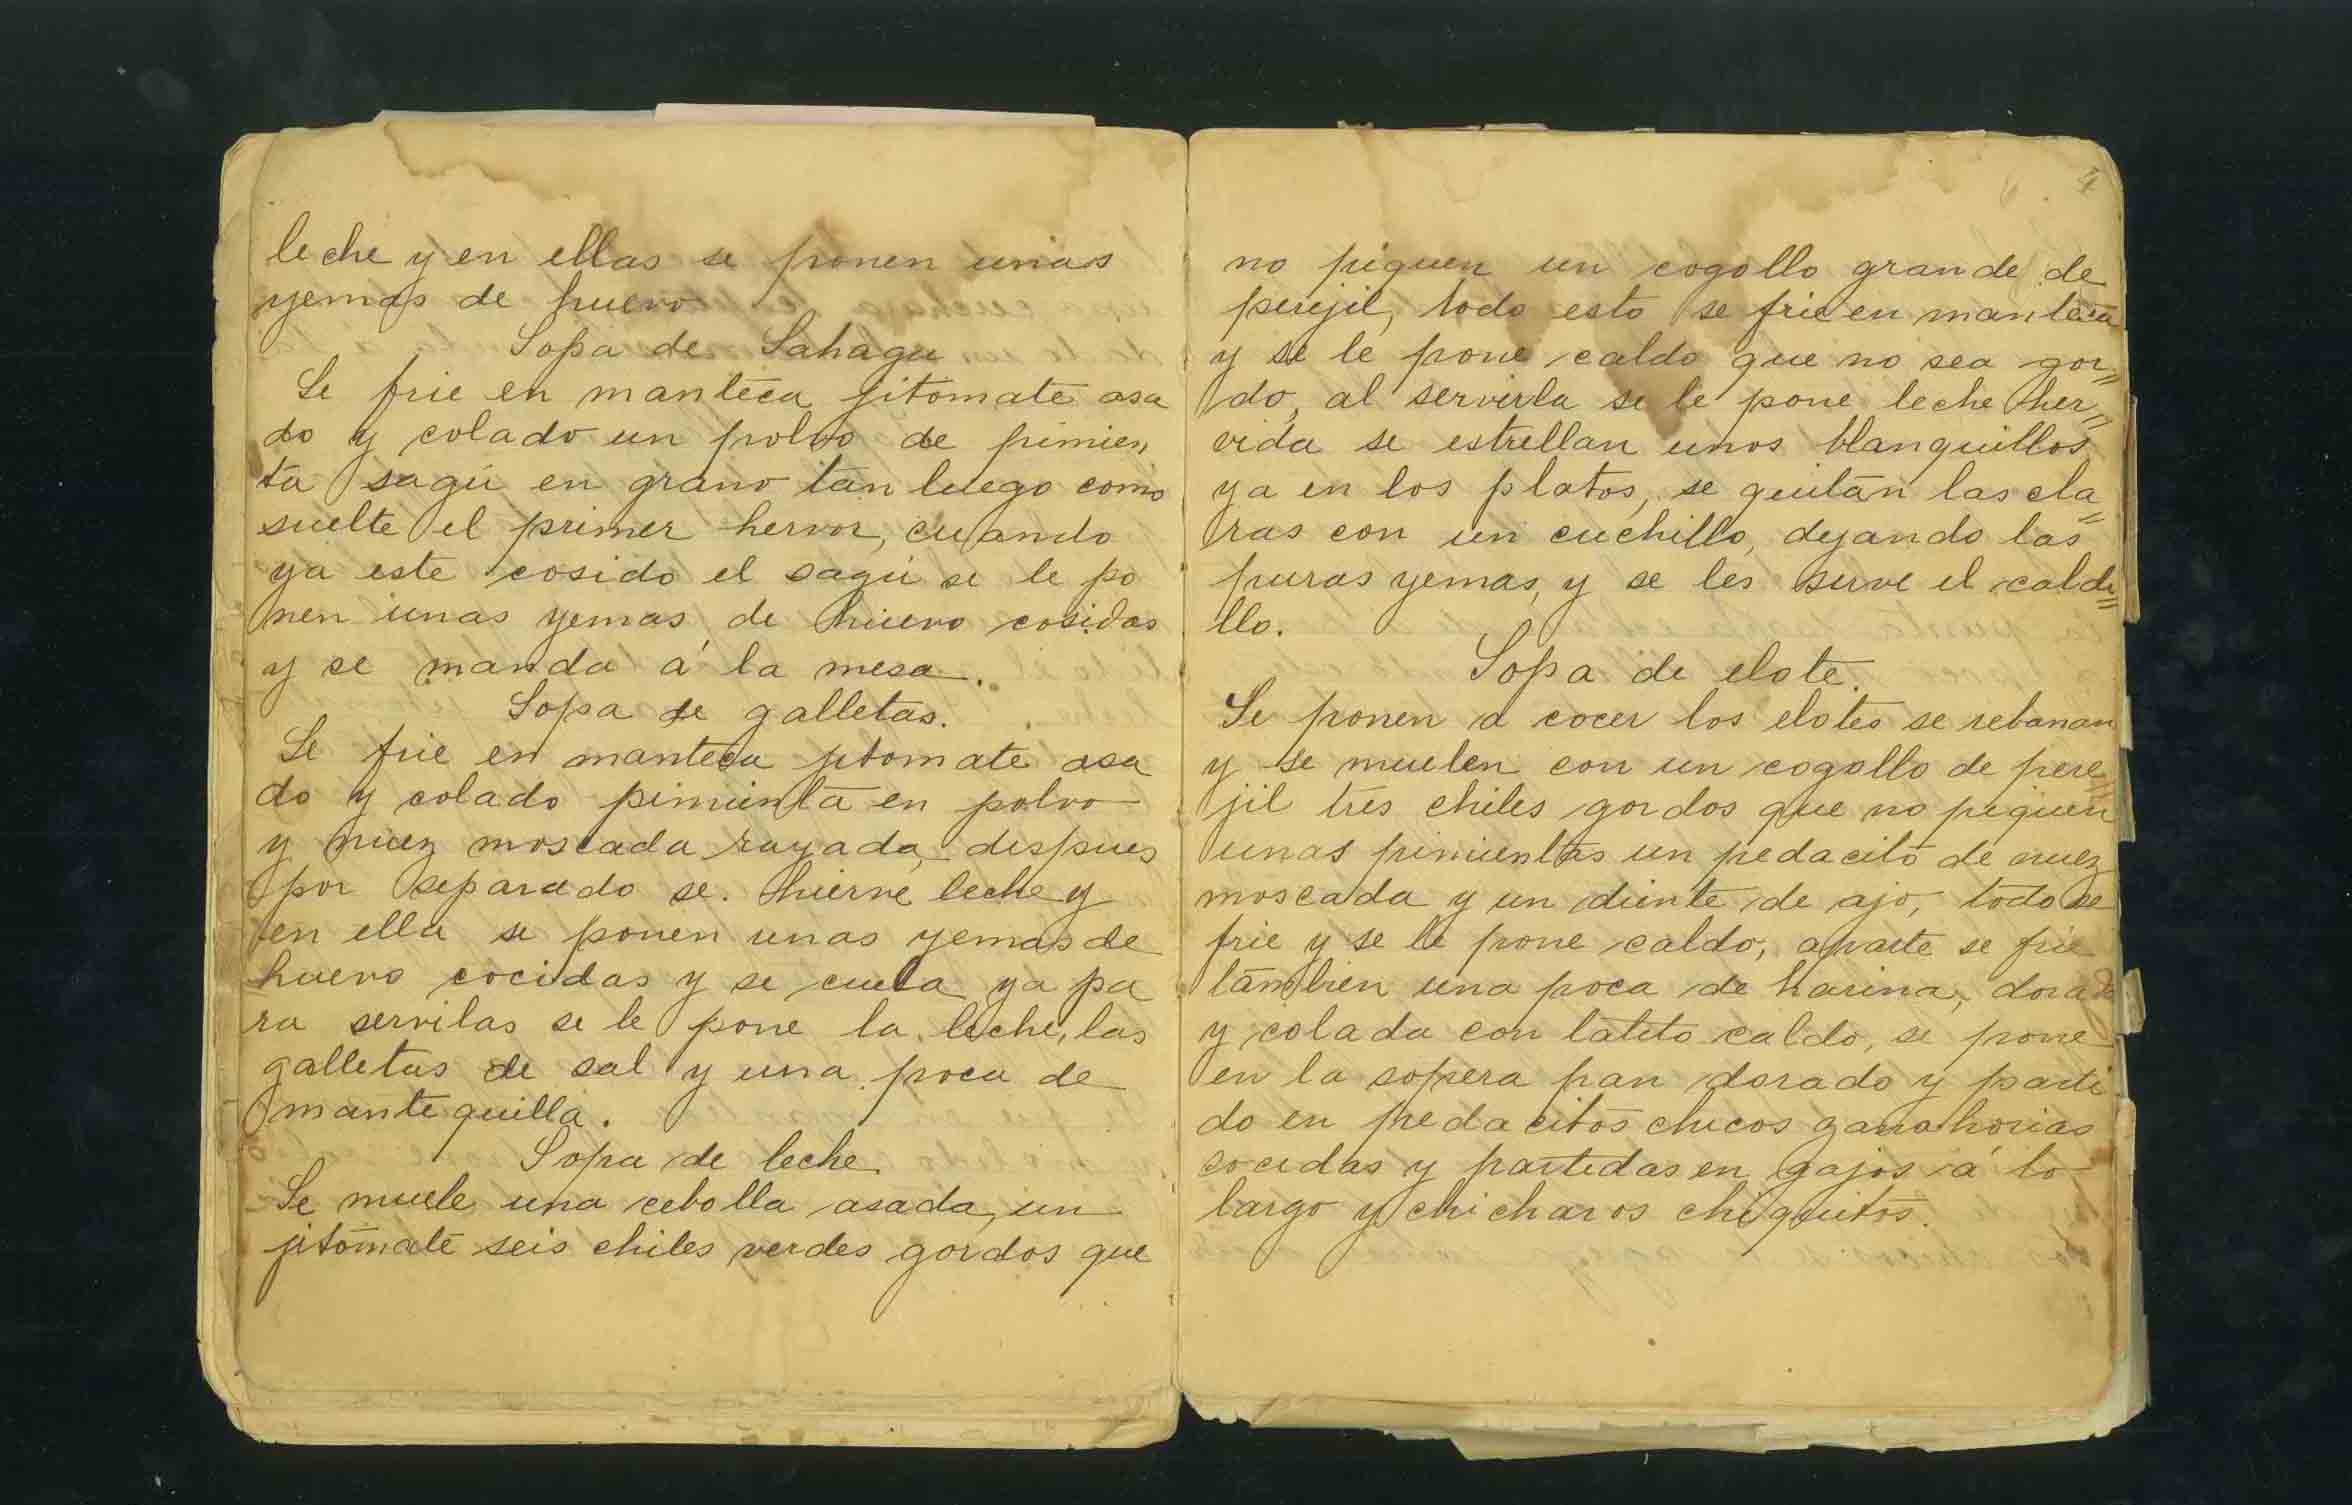 leche y en ellas se ponen unas
yemas de huevo
Sopa de Sahagu
Se frie en manteca jitomate asa
do y colado un polvo de pimien,
ta sagú en grano tan luego como
suelte el primer hervor, cuando
ya este cosido el sagú se le po
nen unas yemas de huevo cosidas
y se manda á la mesa.
Sopa de galletas.
Se frie en manteca jitomate asa
do y colado pimienta en polvo
y nuez moscada rayada, despues
por separado se. hierve leche y
en ella se ponen unas yemas de
huevo cocidas y se cuela ya pa
ra servilas se le pone la leche, las
galletas de sal y una poca de
mantequilla.
Sopa de leche
Se muele una cebolla asada, un
jitomate seis chiles verdes gordos que
4
no piquen un cogollo grande de
perejil, todo esto se frie en manteca
y se le pone caldo que no sea gor=
do, al servirla se le pone leche her=
vida se estrellan unos blanquillos
ya en los platos, se quitan las cla=
ras con un cuchillo, dejando las
puras yemas, y se les sirve el caldi=
llo.
Sopa de elote.
Se ponen a cocer los elotes se rebanan
y se muelen con un cogollo de pere=
jil tres chiles gordos que no piquen
unas pimientas un pedacito de nuez
moscada y un diente de ajo, todo se
frie y se le pone caldo, aparte se frie
tambien una poca de harina, dorada
y colada con tatito caldo, se pone
en la sopera pan dorado y parti
do en pedacitos chicos zanahorias
cocidas y partidas en gajos á lo
largo y chicharos chiquitos.